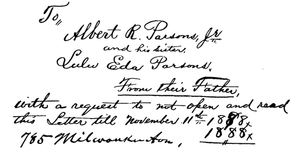 To,,
Albert R. Parsons, Jr.
and his sister,
Lulu Eda Parsons,
From their Father,
with a request to not open and read
this Letter till November 11th 1888,
785 Milwaukee Ave, 1888,